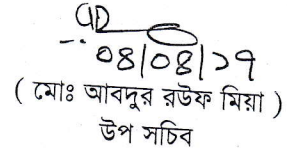 ০৪/০৪/১৭
( মোঃ আবদুর রউফ মিয়া )
উপ সচিব